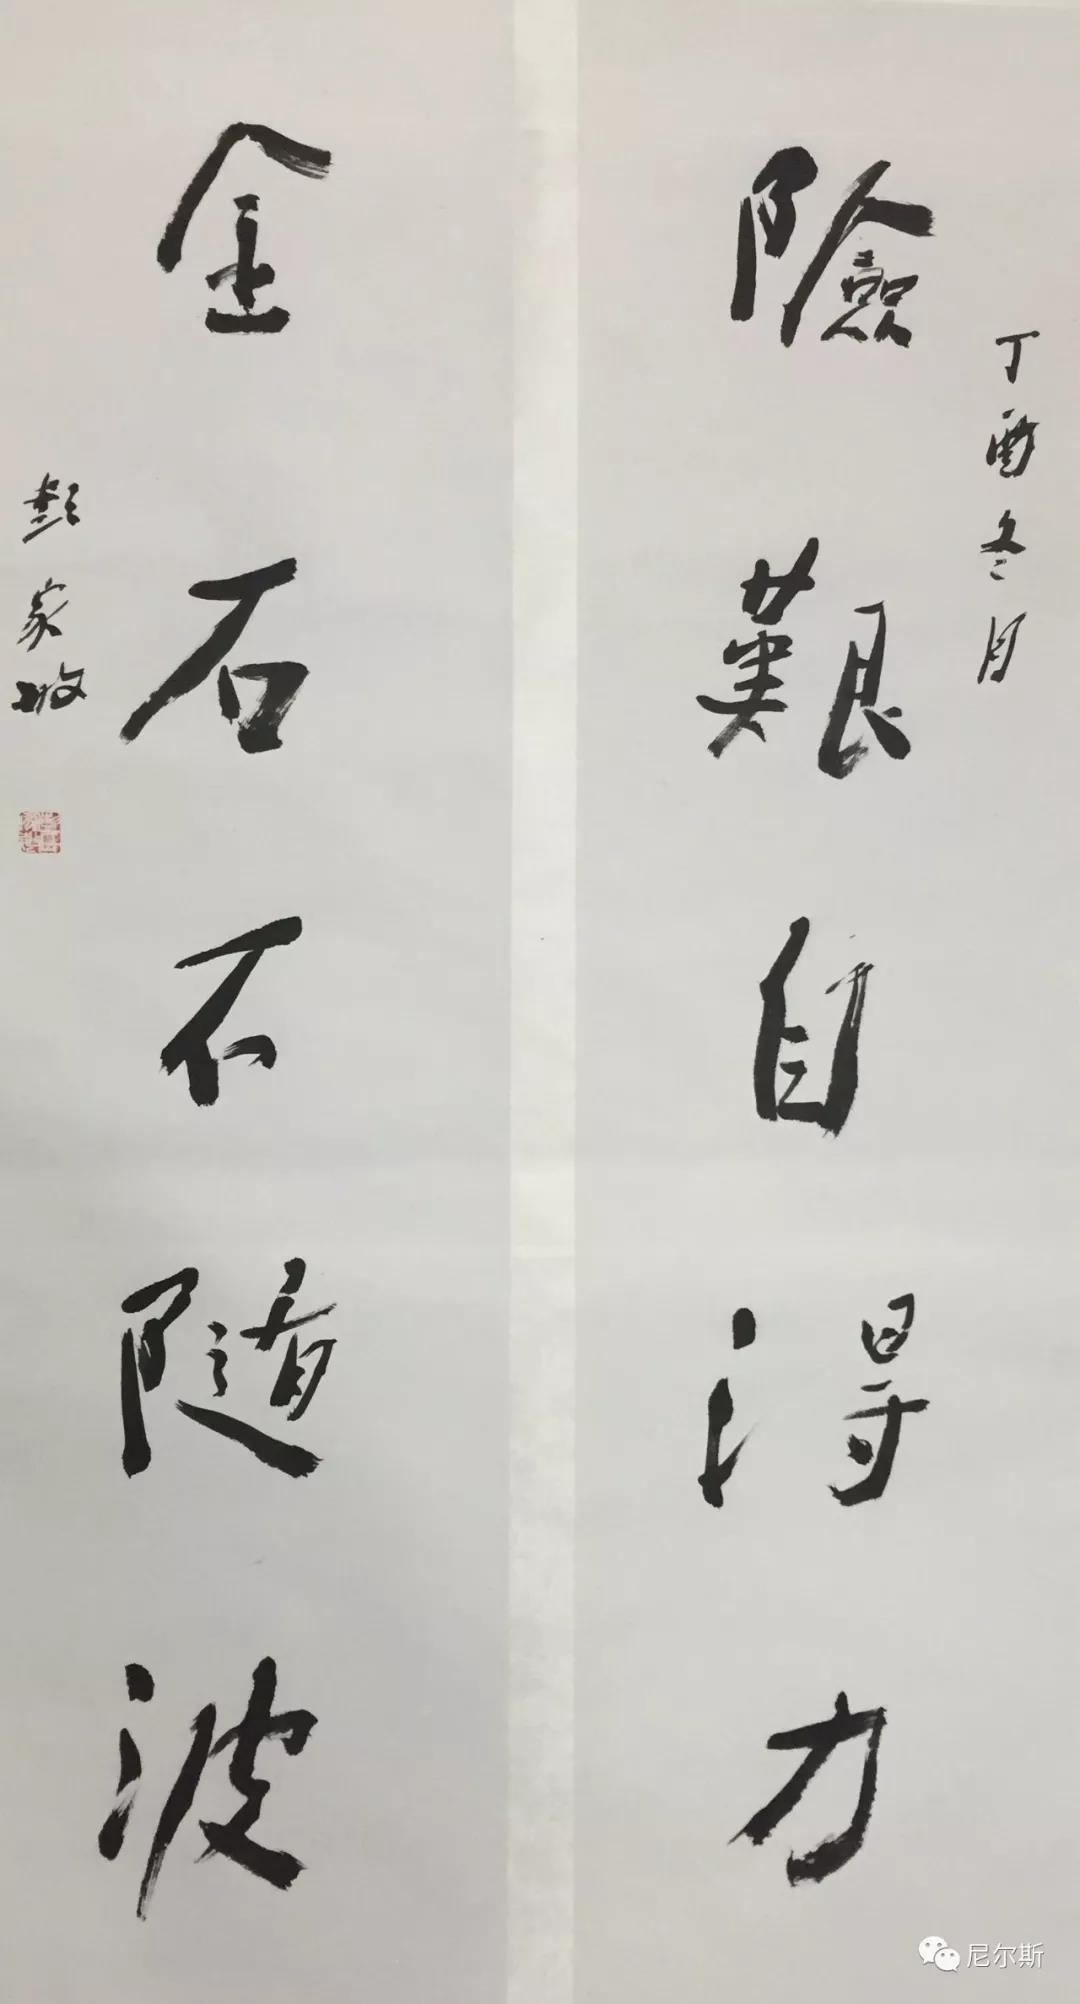 丁酉冬月
險艱自得力
金石不隨波
彭家
尼尔斯